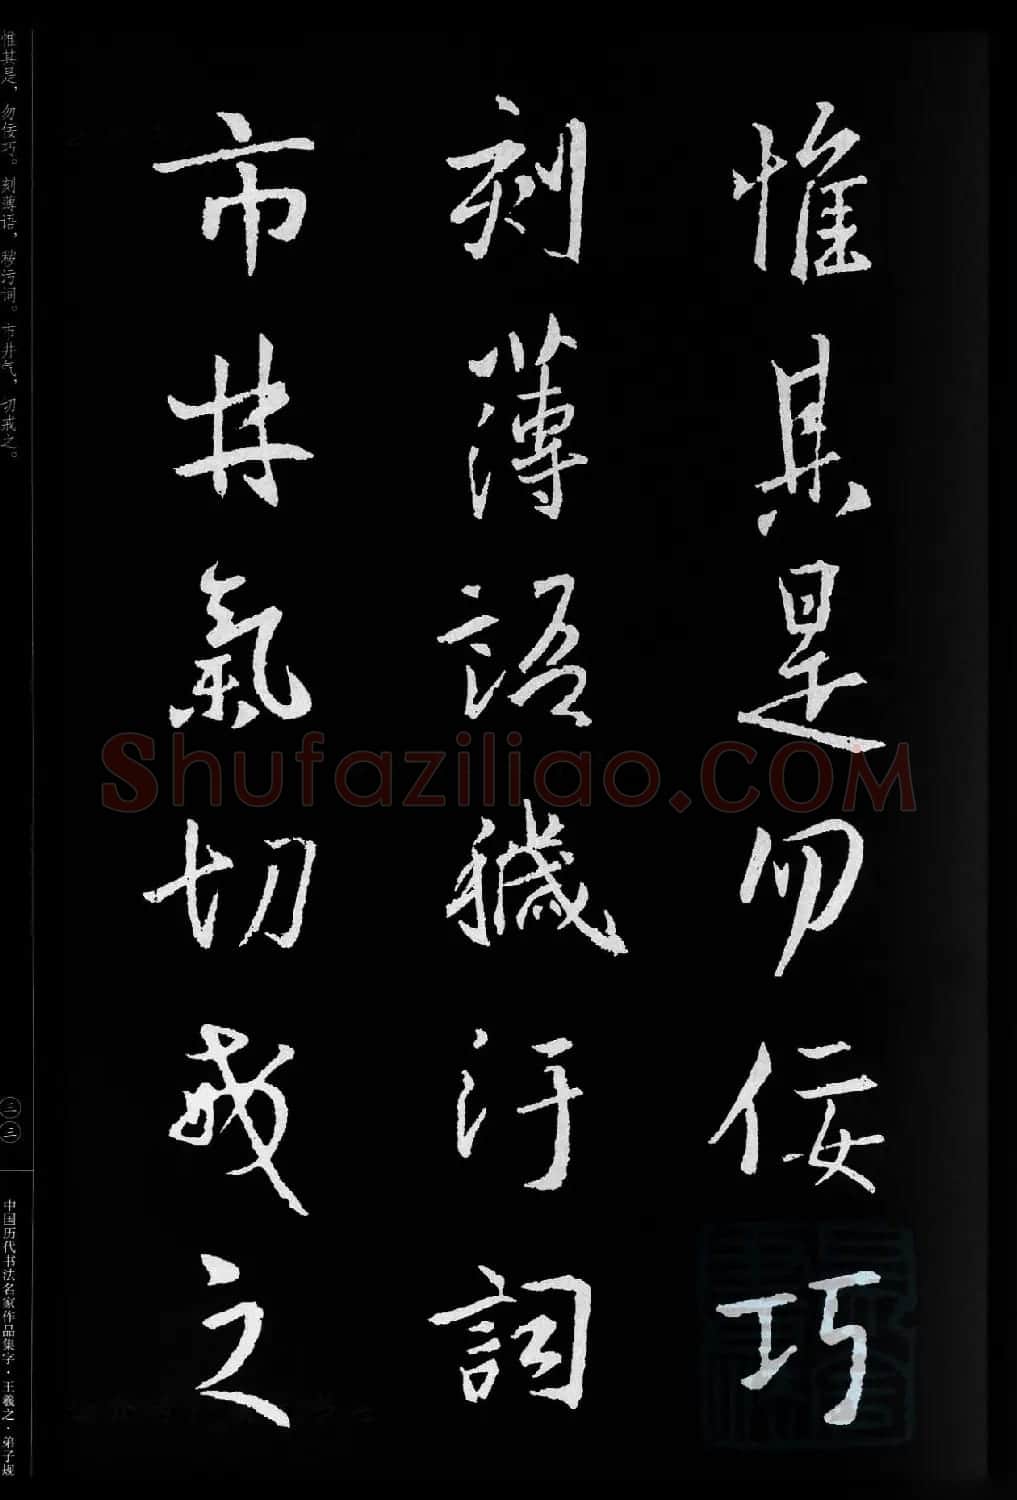 惟其是勿佞巧
刻薄語穢汙詞
市井氣切戒之
惟其是，勿佞巧。刻薄语，秽污词。市井气，切戒之。
三三
中国历代书法名家作品集字·王羲之·弟子规
Shufaziliao.COM